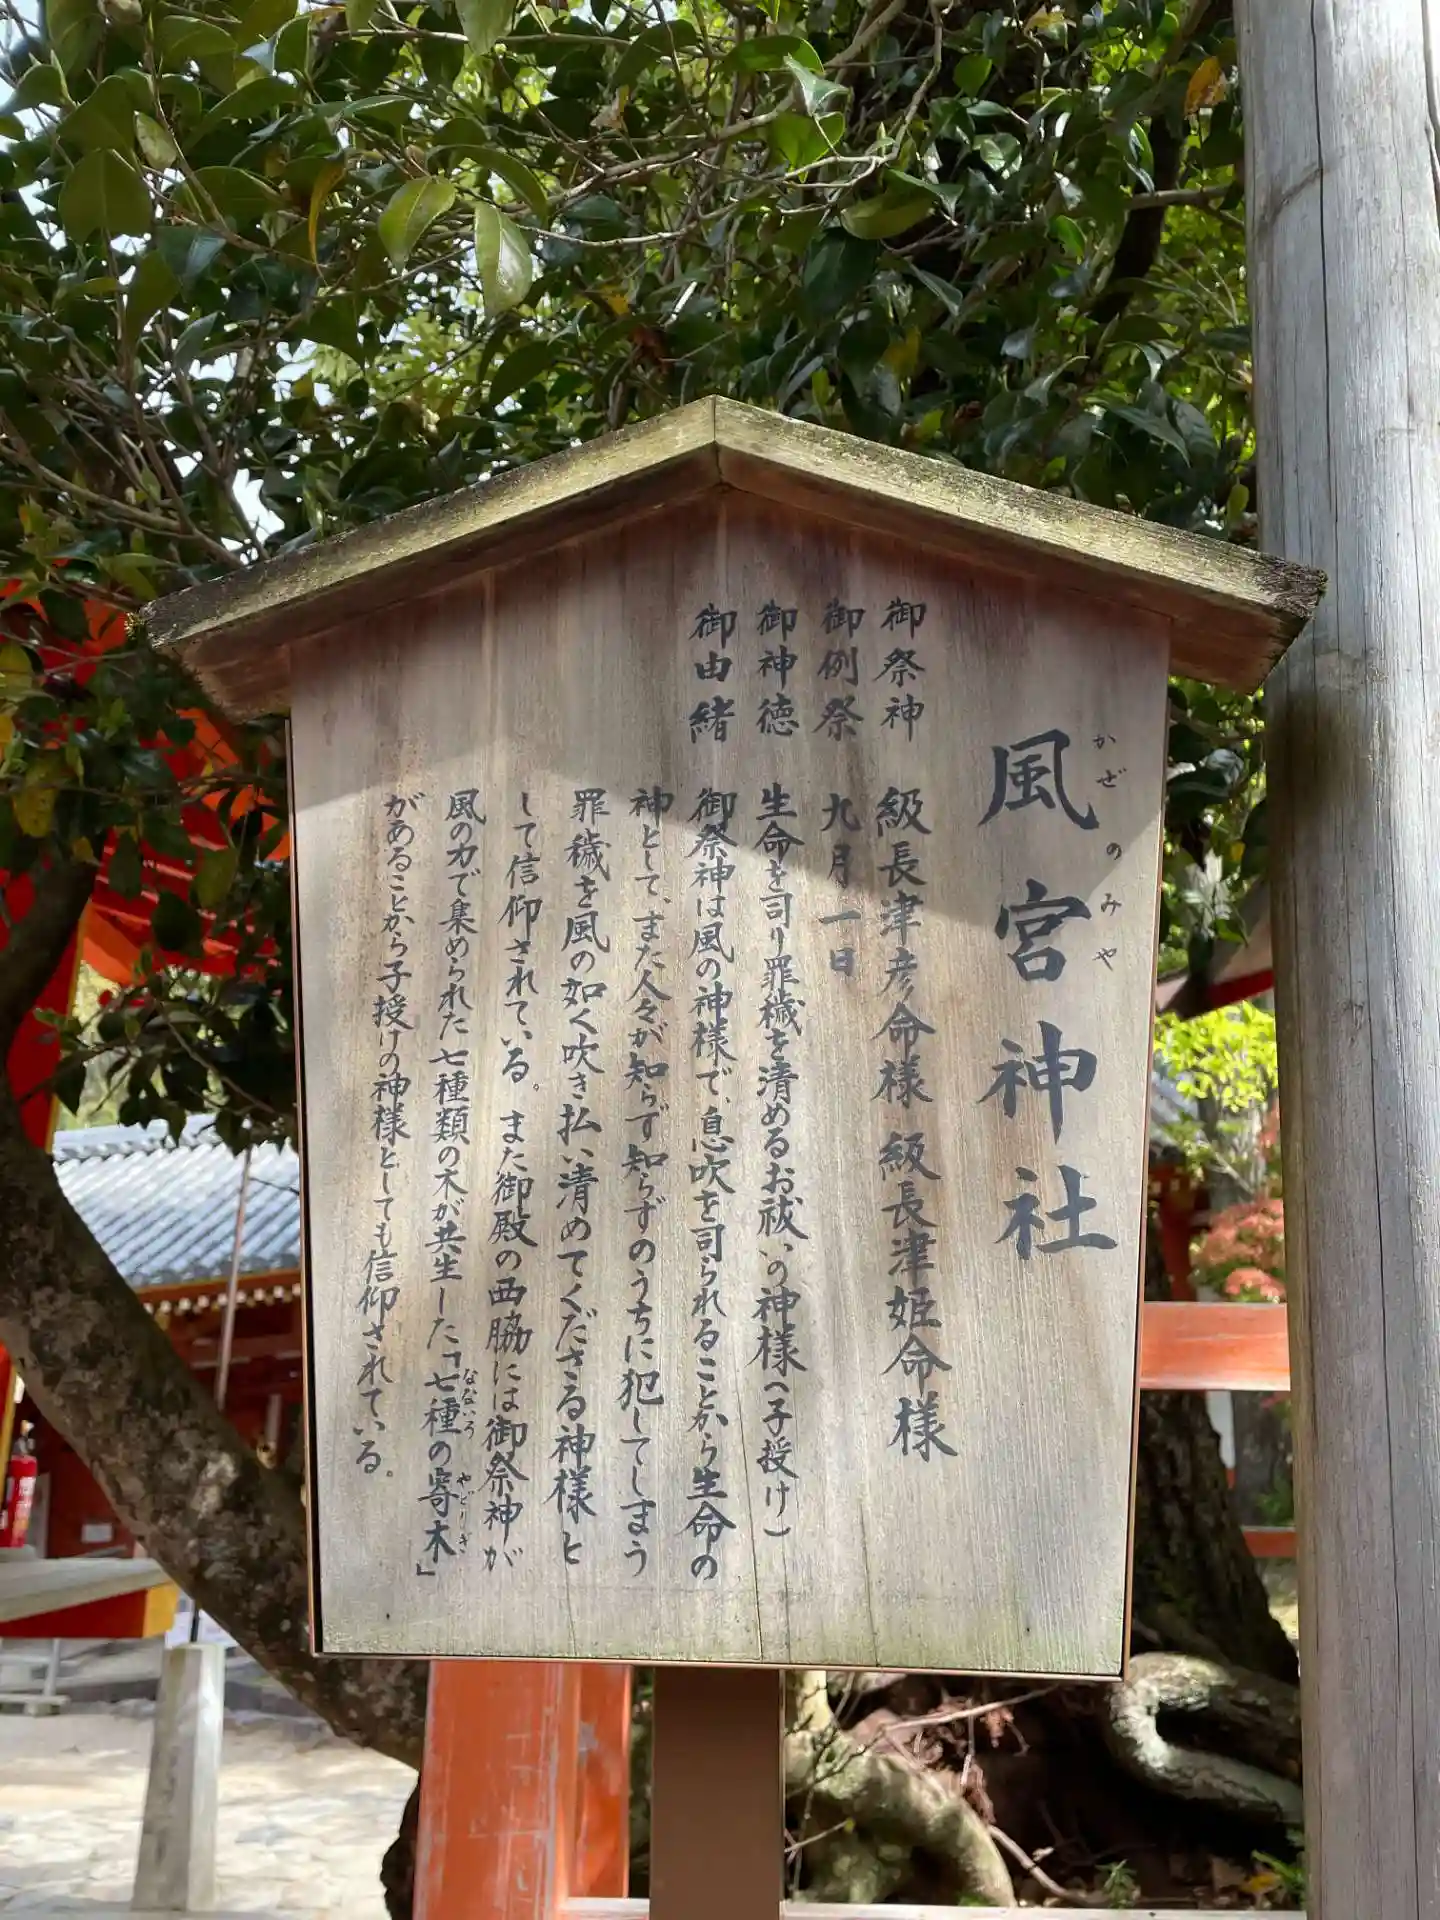 風宮神社
かぜのみや
御祭神 級長津彦命様 級長津姫命様
御例祭 九月一日
御神徳 生命を司り罪穢を清めるお祓いの神様(子授け)
御由緒 御祭神は風の神様で、息吹を司られることから生命の
神として、また人々が知らず知らずのうちに犯してしまう
罪穢を風の如く吹き払い清めてくださる神様と
して信仰されている。また御殿の西脇には御祭神が
風の力で集められた七種類の木が共生した「七種の寄木」
なないろ やどりぎ
があることから子授けの神様としても信仰されている。